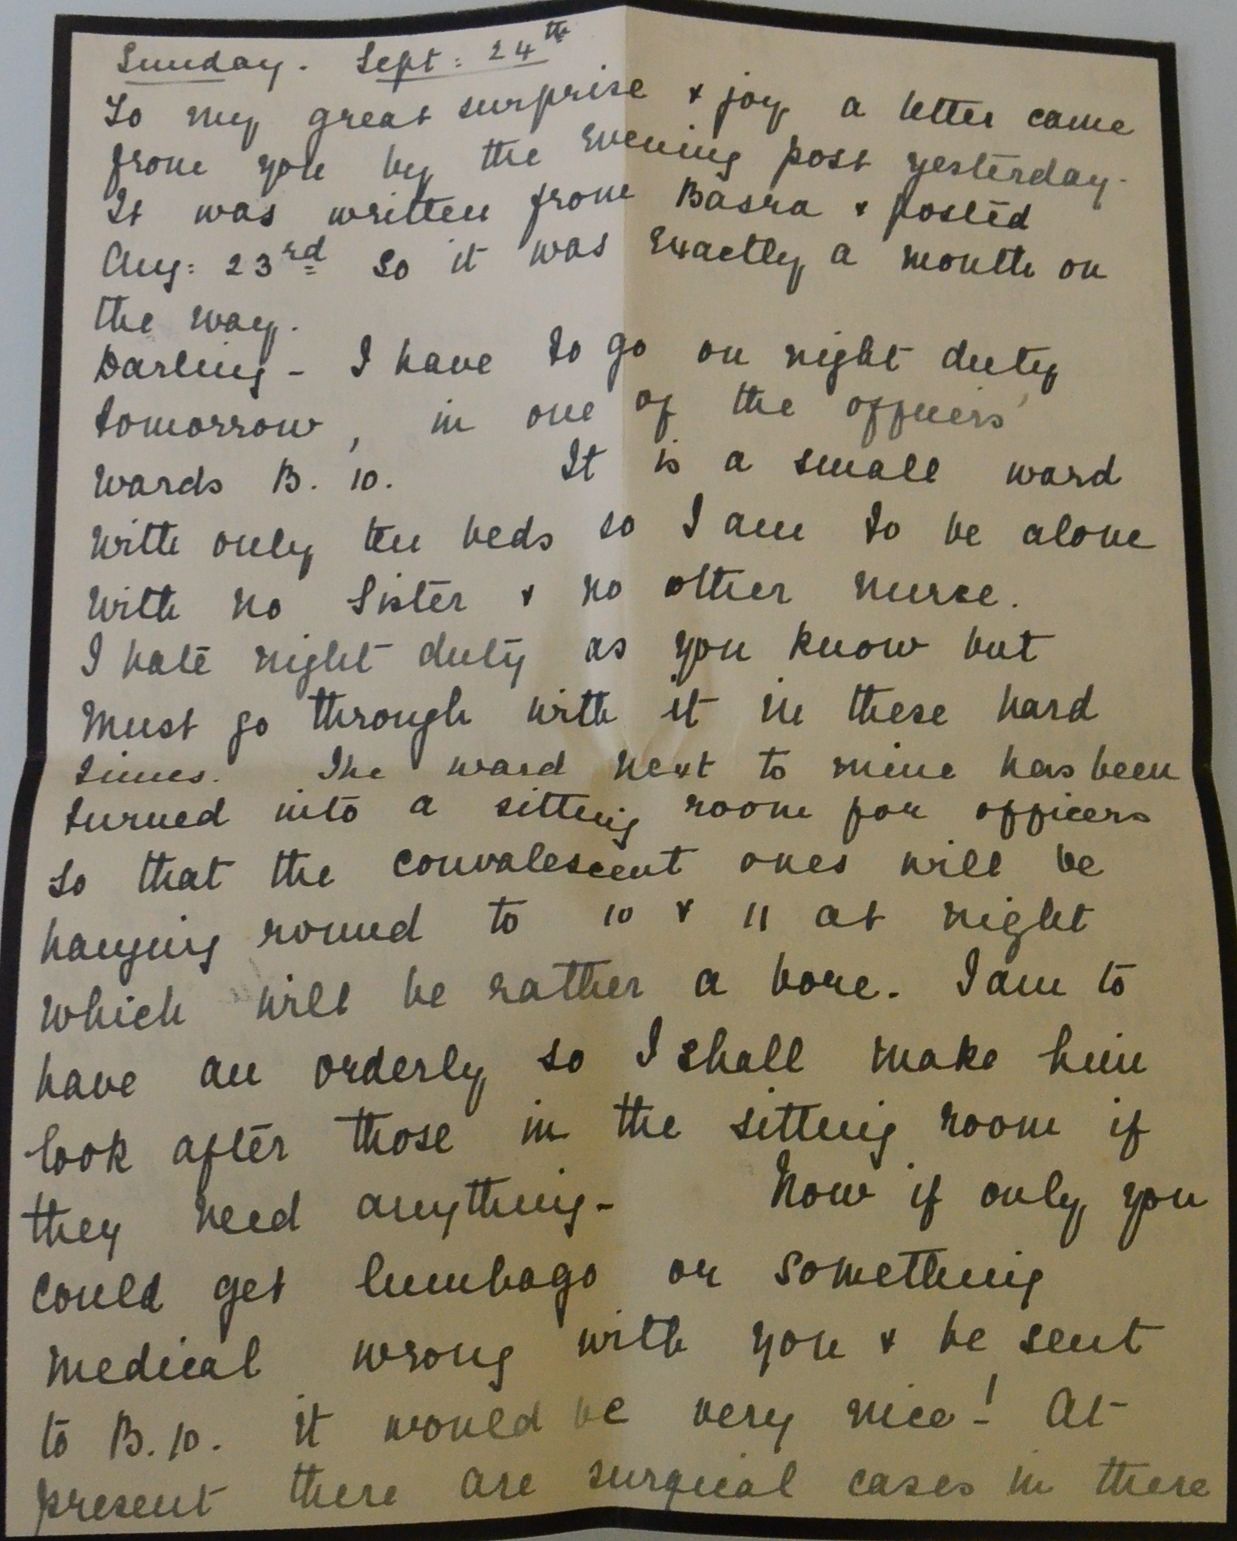 Sunday. Sept: 24th
To my great surprise & joy a letter came
from you by the evening post yesterday.
It was written from Basra & posted
Aug: 23rd so it was exactly a month on
the way.
Darling - I have to go on night duty
tomorrow, in one of the officers'
wards B. 10. It is a small ward
with only ten beds so I am to be alone
with no Sister & no other nurse.
I hate night duty as you know but
must go through with it in these hard
times. The ward next to mine has been
turned into a sitting room for officers
so that the convalescent ones will be
hanging round to 10 & 11 at night
which will be rather a bore. I am to
have an orderly so I shall make him
look after those in the sitting room if
they need anything - Now if only you
could get lumbago or something
medical wrong with you & be sent
to B.10. it would be very nice! At
present there are surgical cases in there